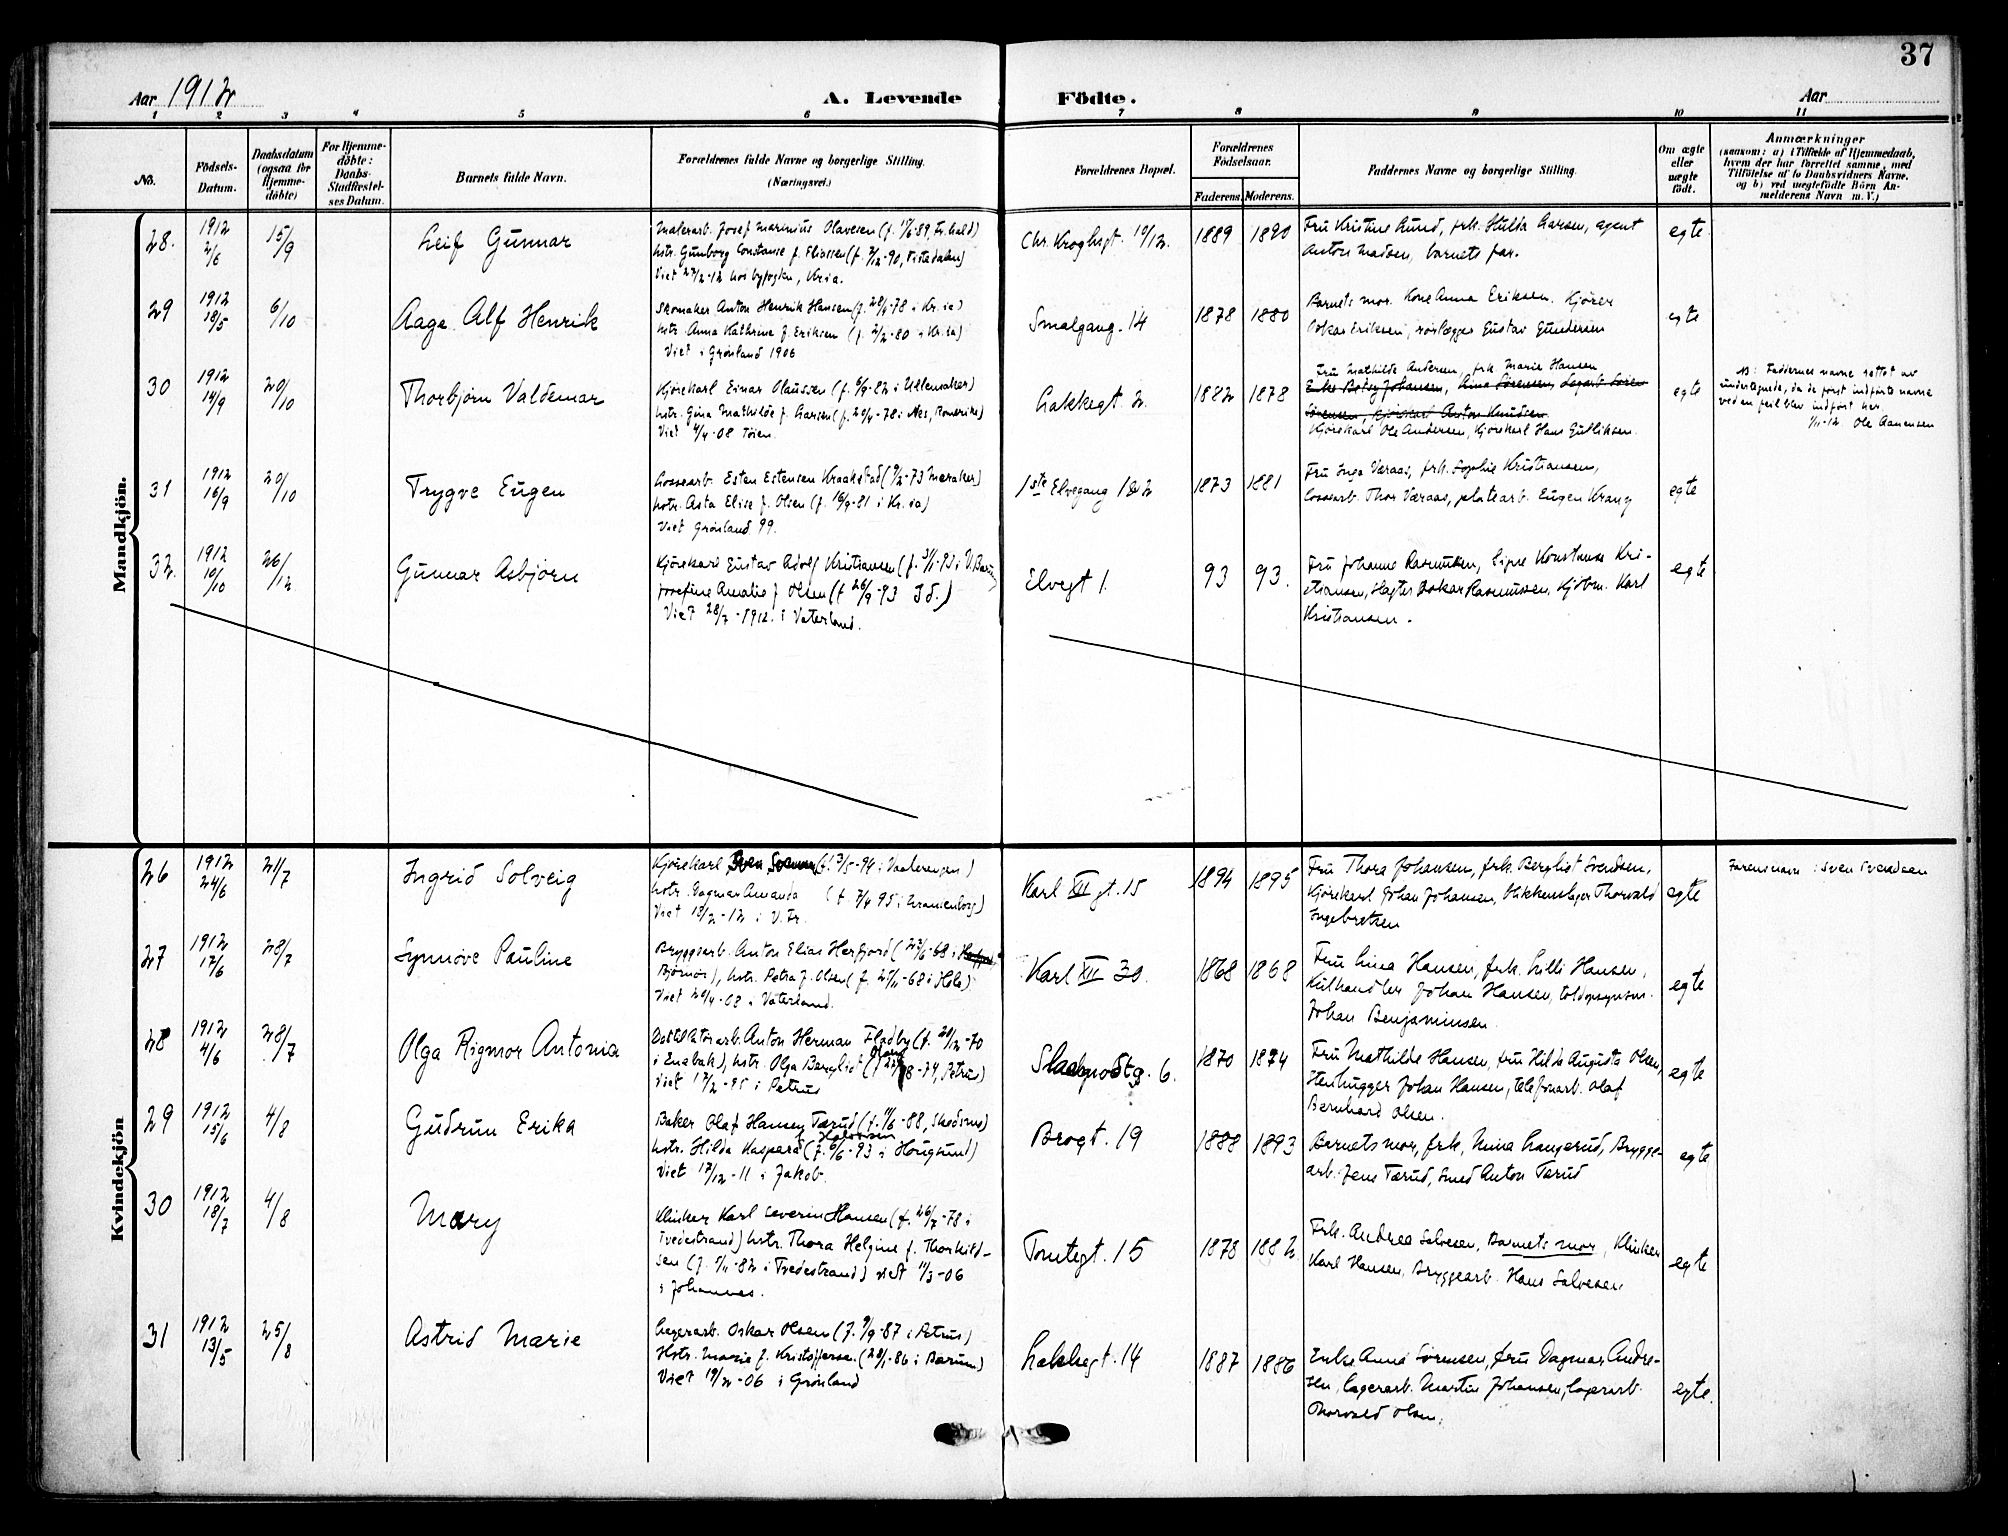 37
Aar 1912 A. Levende Födte. Aar
1 2 3 4 5 6 7 8 9 10 11
No. Födsels-Datum. Daabsdatum (ogsaa for Hjemme-döbte) For Hjemme-döbte: Daabs-Stadfæstel-ses Datum. Barnets fulde Navn. Forældrenes fulde Navne og borgerlige Stilling. (Næringsvei.) Forældrenes Bopæl. Forældrenes Födselsaar. Faderens. Moderens. Faddernes Navne og borgerlige Stilling. Om ægte eller uægte födt. Anmærkninger (saasom: a) i Tilfælde af Hjemmedaab, hvem der har forrettet samme, med Tilföielse af to Daabsvidners Navne. og b) ved uægtefödte Börn An-melderens Navn m. V.)
Mandkjön.
28. 1912 2/6 15/9 Leif Gunnar
Malerarb. Josef Marinius Olavesen
hstr. Gunborg Constance f. Eliassen
Viet 27/2-12 hos byfogden, Kr.ia.
Chr. Kroghsgt. 10/12. 1889 1890
Fru Kristine Lund, frk. Hulda Larsen, agent
Anton Madsen, barnets far.
egte
29 1912 18/5 6/10 Aage Alf Henrik
Skomaker Anton Henrik Hansen (f. 28/4-78 i Kr.ia)
hstr. Anna Kathrine f. Eriksen (f. 2/2-80 i Kr.ia)
Viet i Grønland 1906
Smalgang. 14 1878 1880
Barnets mor. Kone Anna Eriksen. Kjører
Oskar Eriksen, rørlægger Gustav Gundersen
egte
30 1912 14/9 20/10 Thorbjørn Valdemar
Kjørekarl Einar Olaussen (f. 6/9-82 i Ullensaker)
hstr. Gina Mathilde f. Larsen (f. 20/4-78 i Nes, Romerike)
Viet 4/4-08 Tøien.
Lakkegt. 2. 1882 1878
Fru Mathilde Andersen, frk. Marie Hansen
Enke Johansen, Lina Sørensen, Lagarb. Søren
Sørensen, Kjørekarl Anton Knudsen
Kjørekarl Ole Andersen, Kjørekarl Hans Gulliksen.
egte
NB: Faddernes navne rettet av
undertegnede, da de først indførte navne
ved en feil blev indført her.
1/11-12 Ole Aanensen
31 1912 16/9 20/10 Trygve Eugen
Lossearb. Esten Estensen Kraakstad (9/2-73 Meraker)
hstr. Asta Elise f. Olsen (f. 16/9-81 i Kr.ia)
Viet Grønland 99.
1ste Elvegang 1873 1881
Fru Inga Væraas, frk. Sophie Kristiansen,
Lossearb. Thor Væraas, platearb. Eugen Krang
egte
32. 1912 10/10 26/12 Gunnar Asbjørn
Kjørekarl Gustav Adolf Kristiansen (f. 31/1-93 i V. Bærum)
Josefine Amalie f. Olsen (f. 26/9-93 Id.)
Viet 28/7-1912. i Vaterland.
Elvegt 1. 93 93.
Fru Johanne Rasmussen, Signe Konstanse Kri-
stiansen, Slagter Oskar Rasmussen, Kjøbm. Karl
Kristiansen.
egte
Kvindekjön
26 1912 24/6 21/7 Ingrid Solveig
Kjørekarl Sven (f. 13/5-94 i Vaalerengen)
hstr. Dagmar Amanda (f. 7/4 95 i Uranienborg)
Viet 18/2-12 i V. Fr.
Karl XII gt. 15 1894 1895
Fru Thora Johansen, frk. Bergliot Svendsen,
Kjørekarl Johan Johansen, Blikkenslager Thorvald
Ingebretsen
egte
Farens navn: Sven Svendsen
27 1912 17/6 28/7 Synnøve Pauline
Bryggearb. Anton Elias Herfjord (23/6-68 i
Bjørnør), hstr. Petra f. Olsen (f. 27/11-68 i Hole)
Viet 20/4-08 i Vaterland.
Karl XII 30. 1868 1868
Fru Lina Hansen, frk. Lilli Hansen,
Kulhandler Johan Hansen, toldopsynsm.
Johan Benjaminsen.
egte
28 1912 4/6 28/7 Olga Rigmor Antonia
Destillatørarb. Anton Herman Fladby (f. 20/12-70
i Enebak), hstr. Olga Bergliot (f. 8-74, Petrus)
viet 17/2-95 i Petrus
6. 1870 1874
Fru Mathilde Hansen, fru Hilda Augusta Olsen,
Stenhugger Johan Hansen, telefonarb. Olaf
Bernhard Olsen.
egte
29 1912 15/6 4/8 Gudrun Erika
Baker Olaf Hansen Tærud (f. 11/6-88, Skedsmo)
hstr. Hilda Kaspara Halvorsen (f. 6/6-93 i Hougsund)
Viet 17/12-11 i Jakob.
Brogt. 19 1888 1893
Barnets mor, frk. Nina Langerud, Brygge-
arb. Jens Tærud, Smed Anton Tærud
egte
30 1912 18/7 4/8 Mary
Klinker Karl Severin Hansen (f. 26/7-78 i
Tvedestrand) hstr. Thora Helgine f. Thorkild-
sen (f. 5/11-82 i Tvedestrand) viet 11/3-06
i Johannes.
Tomtegt. 15 1878 1882.
Frk. Andrea Salvesen, Barnets mor, Klinker
Karl Hansen, Bryggearb. Hans Salvesen.
egte
31 1912 13/5 25/8 Astrid Marie
Lagerarb. Oskar Olsen (f. 9/9-87 i Petrus)
Hstr. Marie f. Kristoffersen (28/1-86 i Bærum)
Viet 19/2-06 i Grønland
Lakkegt. 14 1887 1886
Enke Anna Sørensen, fru Dagmar Andre-
sen, Lagerarb. Martin Johansen, Lagerarb.
Thorvald Olsen.
egte.